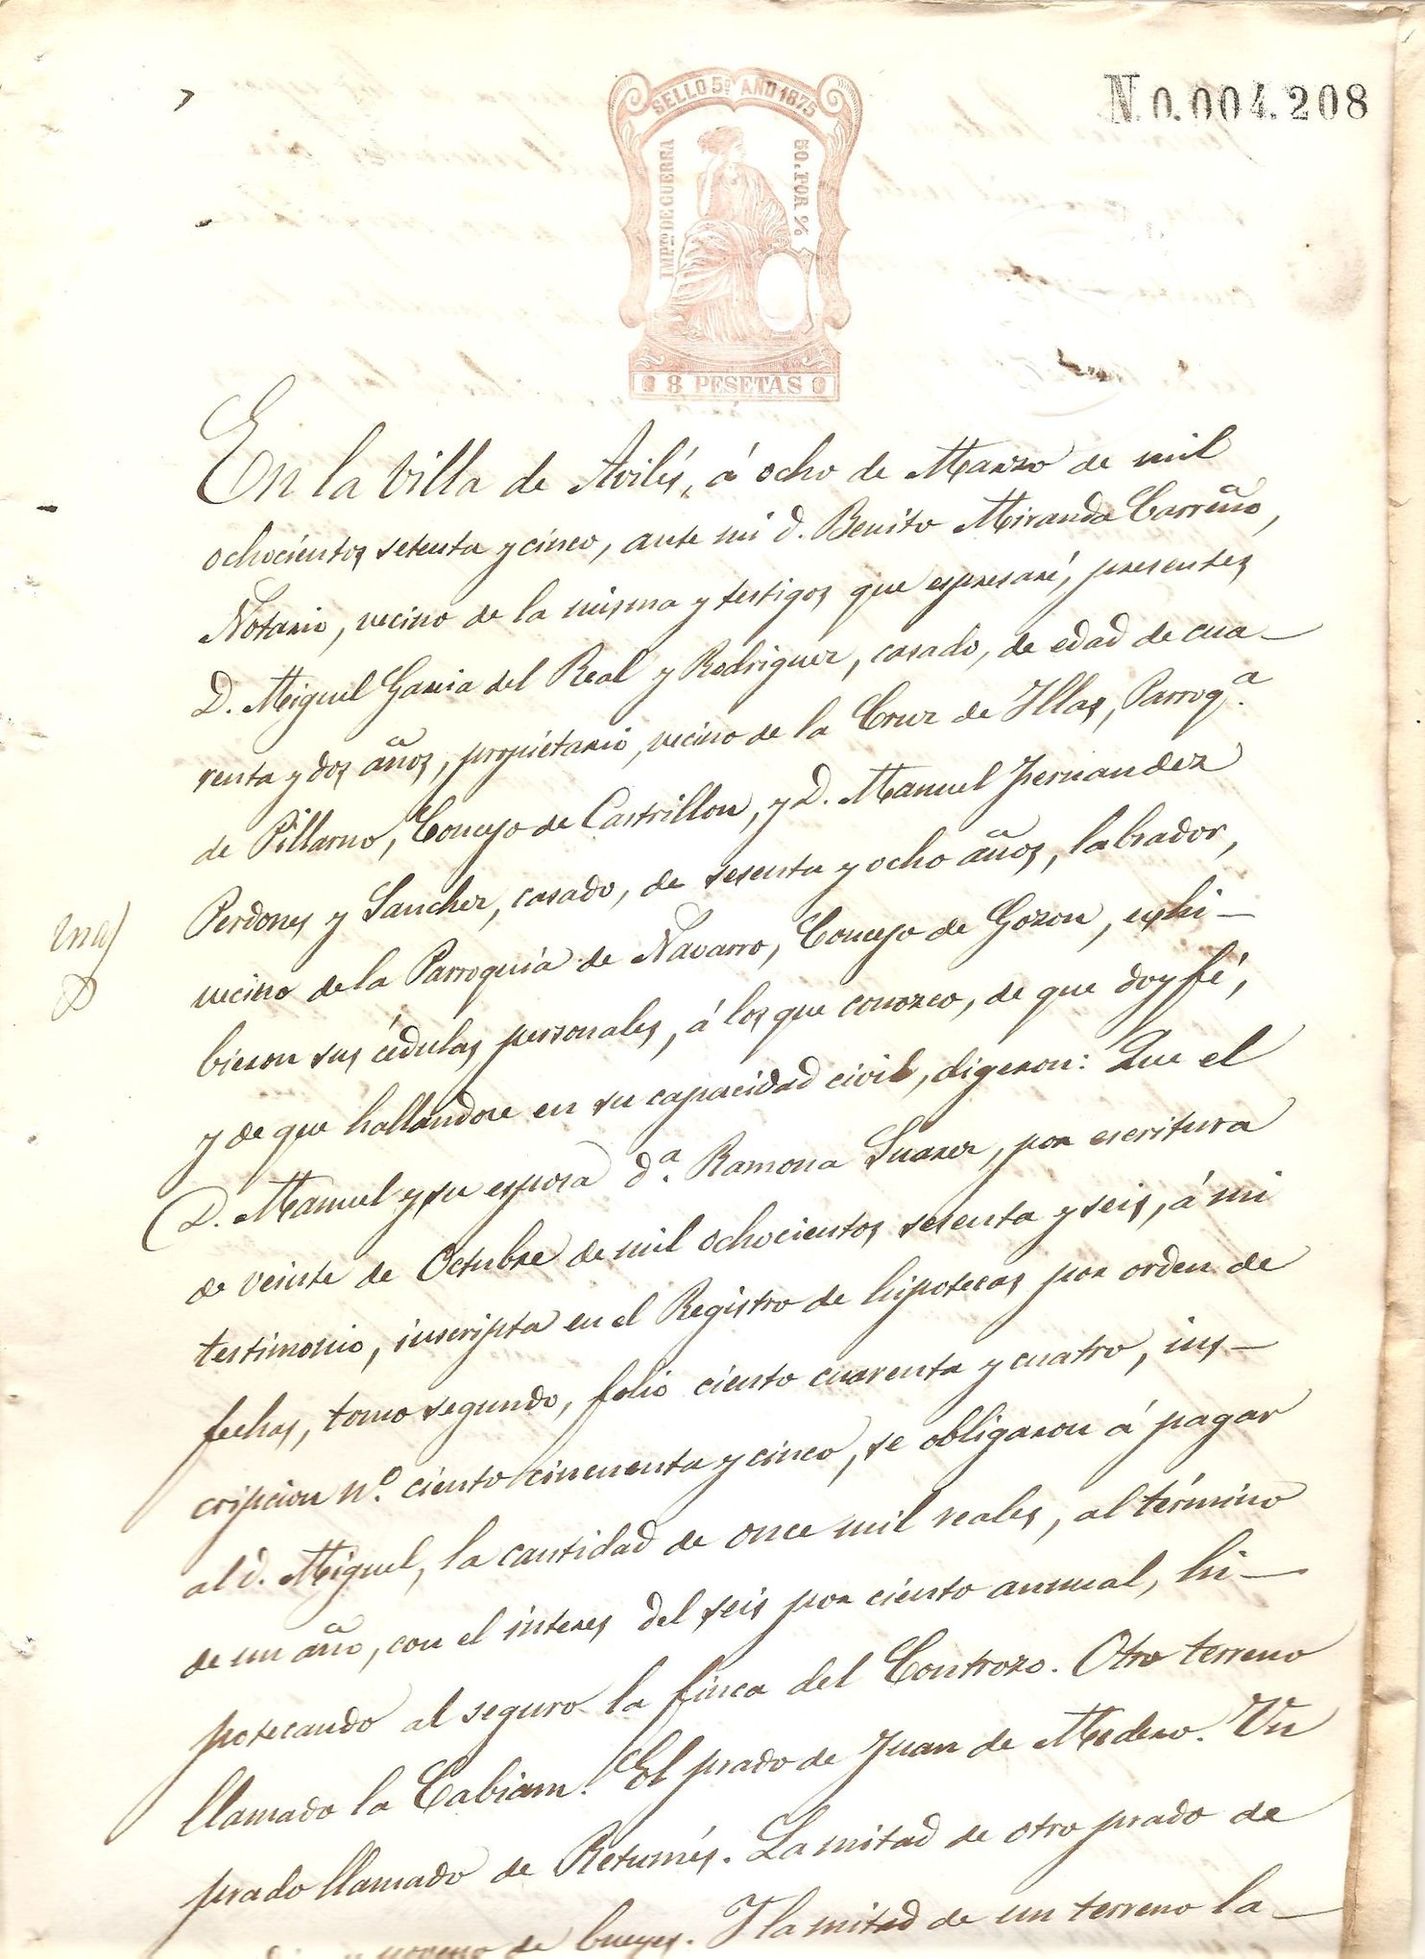 N.0.004.208
SELLO 5º AÑO 1875
IMPTO DE GUERRA
50. POR %
8 PESETAS
En la Villa de Avilés, á ocho de Marzo de mil
ochocientos setenta y cinco, ante mi d. Benito Miranda Carreño,
Notario, vecino de la misma y testigos que espresaré, presentes
D. Miguel Garcia del Real y Rodriguez, casado, de edad de cua-
renta y dos años, propietario, vecino de la Cruz de Yllas, Parroqª.
de Pillarno, Concejo de Castrillon, y D. Manuel Fernandez
Perdones y Sanchez, casado, de sesenta y ocho años, labrador,
vecino de la Parroquia de Navarro, Concejo de Gozon, exhi-
bieron sus cédulas personales, á los que conozco, de que doy fé,
y de que hallandose en su capacidad civil, digeron: Que el
D. Manuel y su esposa dª. Ramona Suarez, por escritura
de veinte de Octubre de mil ochocientos sesenta y seis, á mi
testimonio, inscripta en el Registro de hipotecas por orden de
fechas, tomo segundo, folio ciento cuarenta y cuatro, ins-
cripcion nº. ciento cincuenta y cinco, se obligaron á pagar
al d. Miguel, la cantidad de once mil reales, al término
de un año, con el interes del seis por ciento annual, hi-
potecando al seguro la finca del Controzo. Otro terreno
llamado la Cabiam. El prado de Juan de Modero. Un
prado llamado de Retumés. La mitad de otro prado de
noveno de bueyes. Y la mitad de un terreno la-